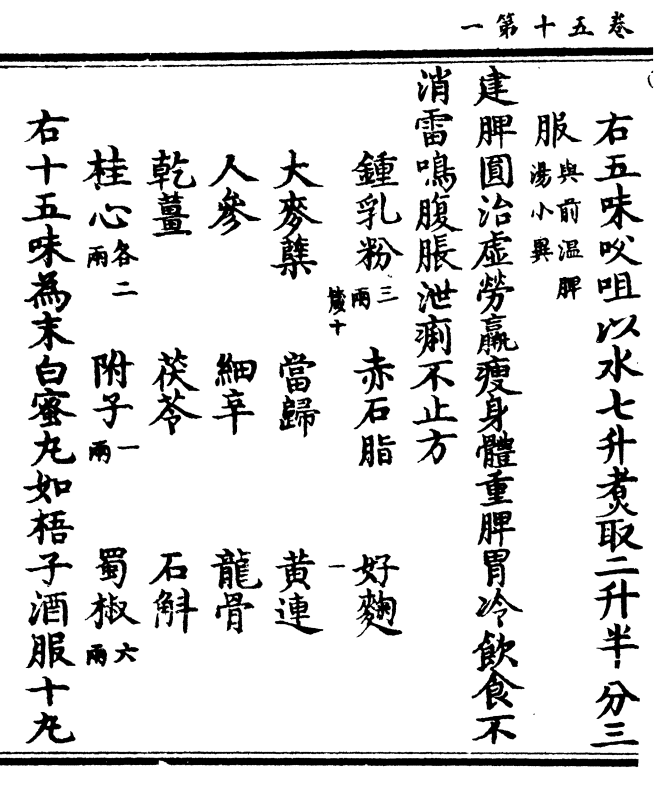 卷五十第一
右五味㕮咀以水七升煮取二升半分三
服與前温脾湯小異
建脾圓治虛勞羸瘦身體重脾胃冷飲食不
消雷鳴腹脹泄痢不止方
鍾乳粉三兩 赤石脂 好麴
大麥糵 當歸 黃連
人參 細辛 龍骨
乾薑 茯苓 石斛
桂心各二兩 附子一兩 蜀椒六兩
右十五味為末白蜜丸如梧子酒服十丸